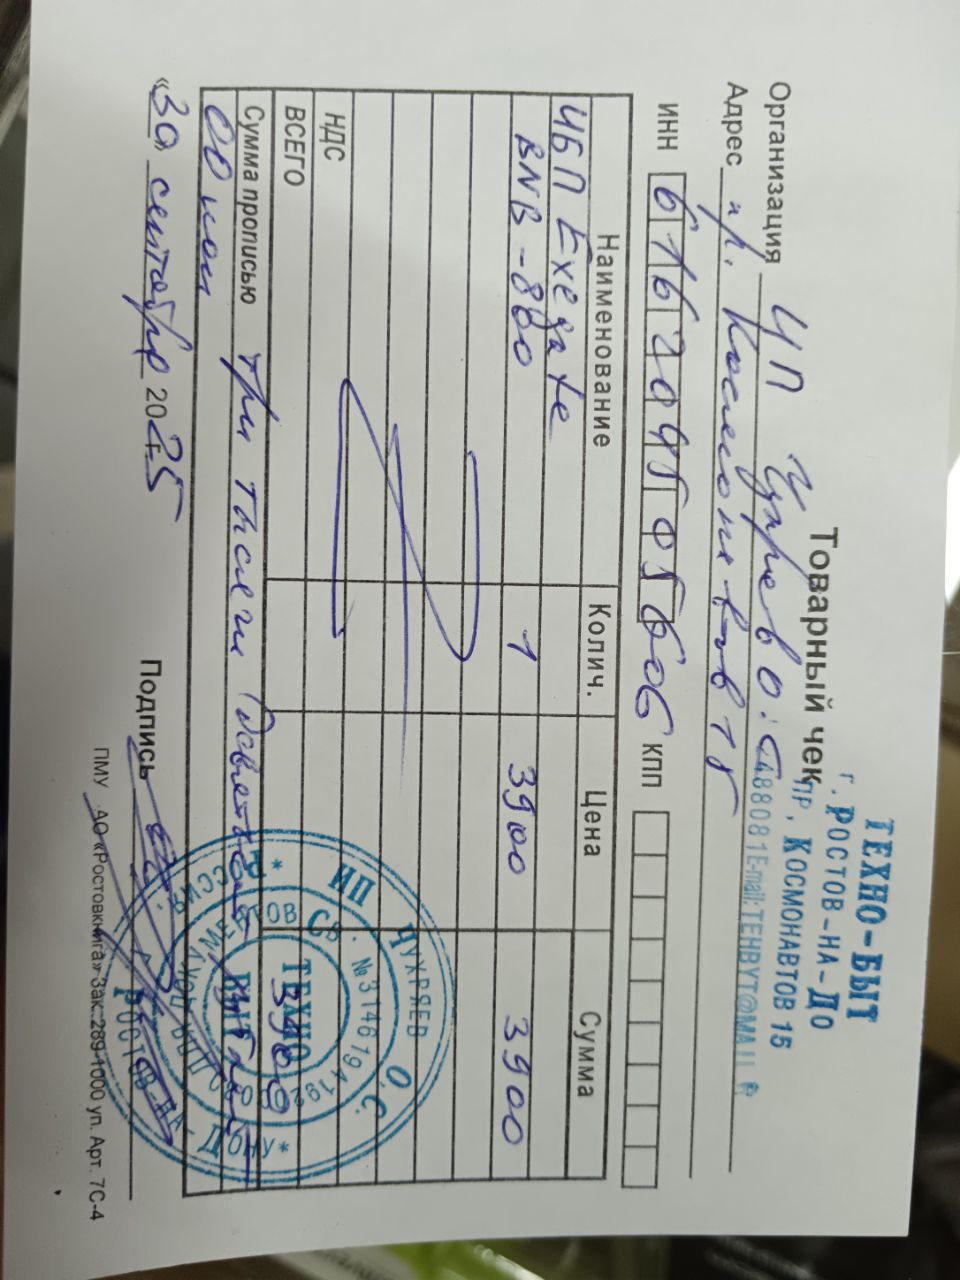 ТЕХНО-БЫТ
г. РОСТОВ-НА-ДО
ПР. КОСМОНАВТОВ 15
Товарный чек
488081E-mail:TEHBYT@MAIL.R
Организация ИП Цухряев О.С
Адрес пр. Космонавтов 15
ИНН КПП
Наименование Колич. Цена Сумма
ИБП Exegate
BNB-800 1 3900 3900
НДС
ВСЕГО 3900
Сумма прописью три тысячи девятсот рублей
00 коп
«30» сентября 2025 Подпись
ПМУ АО «Ростовкнига» Зак. 289-1000 уп. Арт. 7С-4
ИП ЦУХРЯЕВ О.С.
* РОССИЯ * Г. РОСТОВ-НА-ДОНУ *
СВ. №
ДЛЯ ДОКУМЕНТОВ
ТЕХНО
БЫТ